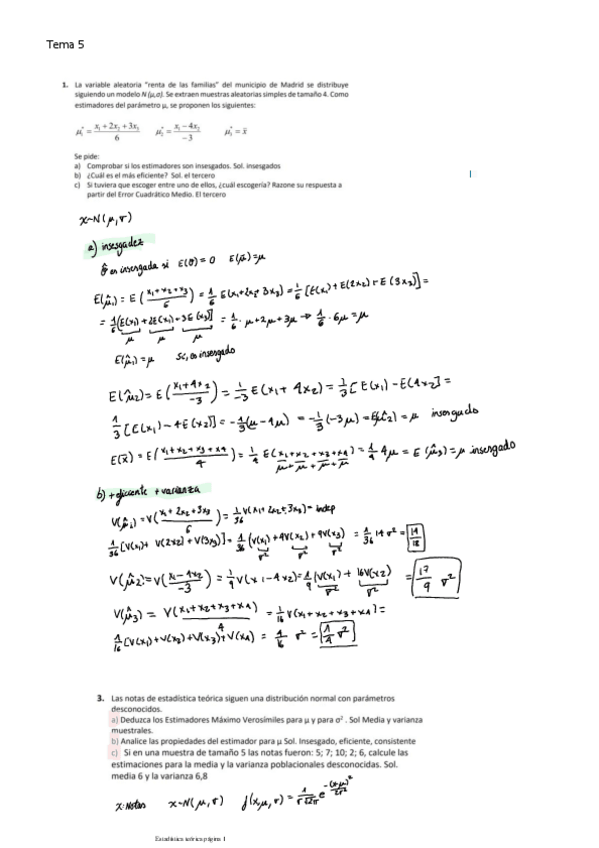 Tema 5
1. La variable aleatoria "renta de las familias" del municipio de Madrid se distribuye
siguiendo un modelo N (μ,σ). Se extraen muestras aleatorias simples de tamaño 4. Como
estimadores del parámetro μ, se proponen los siguientes:
μ₁* = (x₁ + 2x₂ + 3x₃)/6 μ₂* = (x₁ − 4x₂)/−3 μ₃* = x̄
Se pide:
a) Comprobar si los estimadores son insesgados. Sol. insesgados
b) ¿Cuál es el más eficiente? Sol. el tercero
c) Si tuviera que escoger entre uno de ellos, ¿cuál escogería? Razone su respuesta a
partir del Error Cuadrático Medio. El tercero
x~N(μ,σ)
a) insesgadez
θ̂ es insesgada si E(θ̂) = 0 E(μ̂)=μ
E(μ̂₁) = E((x₁+x₂+x₃)/6) = 1/6 E(x₁+2x₂+3x₃) = 1/6 [E(x₁)+E(2x₂)+E(3x₃)] =
= 1/6 [E(x₁)+2E(x₂)+3E(x₃)] = 1/6 · μ+2μ+3μ → 1/6 · 6μ = μ
μ μ μ
E(μ̂₁)=μ Sí, es insesgado
E(μ̂₂)=E((x₁+4x₂)/−3) = 1/−3 E(x₁+4x₂) = 1/3 [E(x₁)−E(4x₂)] =
1/3 [E(x₁)−4E(x₂)] = −1/3(μ−4μ) = −1/3(−3μ) = E(μ̂₂) = μ insesgado
E(x̄) = E((x₁+x₂+x₃+x₄)/4) = 1/4 E(x₁+x₂+x₃+x₄) = 1/4 4μ = E(μ̂₃) = μ insesgado
μ+μ+μ+μ
b) + eficiente + varianza
V(μ̂₁)=V((x₁+2x₂+3x₃)/6) = 1/36 V(x₁+2x₂+3x₃) = indep
1/36 [V(x₁)+V(2x2)+V(3x₃)] = 1/36 (V(x₁)+4V(x₂)+9V(x₃) = 1/36 14 σ² = 14/18
σ² σ² σ²
V(μ̂₂)=V((x₁−4x₂)/−3) = 1/9 V(x₁−4x2) = 1/9 (V(x₁)+16V(x2) = 17/9 σ²
σ² σ²
V(μ̂₃) = V((x₁+x₂+x₃+x₄)/4) = 1/16 V(x₁+x₂+x₃+x₄) =
1/16 [V(x₁)+V(x₂)+V(x₃)+V(x₄) = 4/16 σ² = 1/4 σ²
3. Las notas de estadística teórica siguen una distribución normal con parámetros
desconocidos.
a) Deduzca los Estimadores Máximo Verosímiles para μ y para σ² . Sol Media y varianza
muestrales.
b) Analice las propiedades del estimador para μ Sol. Insesgado, eficiente, consistente
c) Si en una muestra de tamaño 5 las notas fueron: 5; 7; 10; 2; 6, calcule las
estimaciones para la media y la varianza poblacionales desconocidas. Sol.
media 6 y la varianza 6,8
x: Notas x~N(μ,σ) f(x,μ,σ) = 1/(σ√2π) e^(−(x−μ)²/2σ²)
Estadística teórica página 1